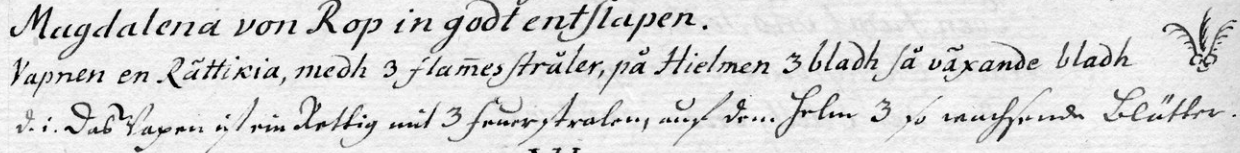 Magdalena von Rop in godt entslapen.
Vapnen en Rättikia, medh 3 flam̄es stråler, på Hielmen 3 bladh så växande bladh
d. i. Das Vapen ist ein Rettig mit 3 Feuerstralen, auf dem Helm 3 so wachsende Blätter.